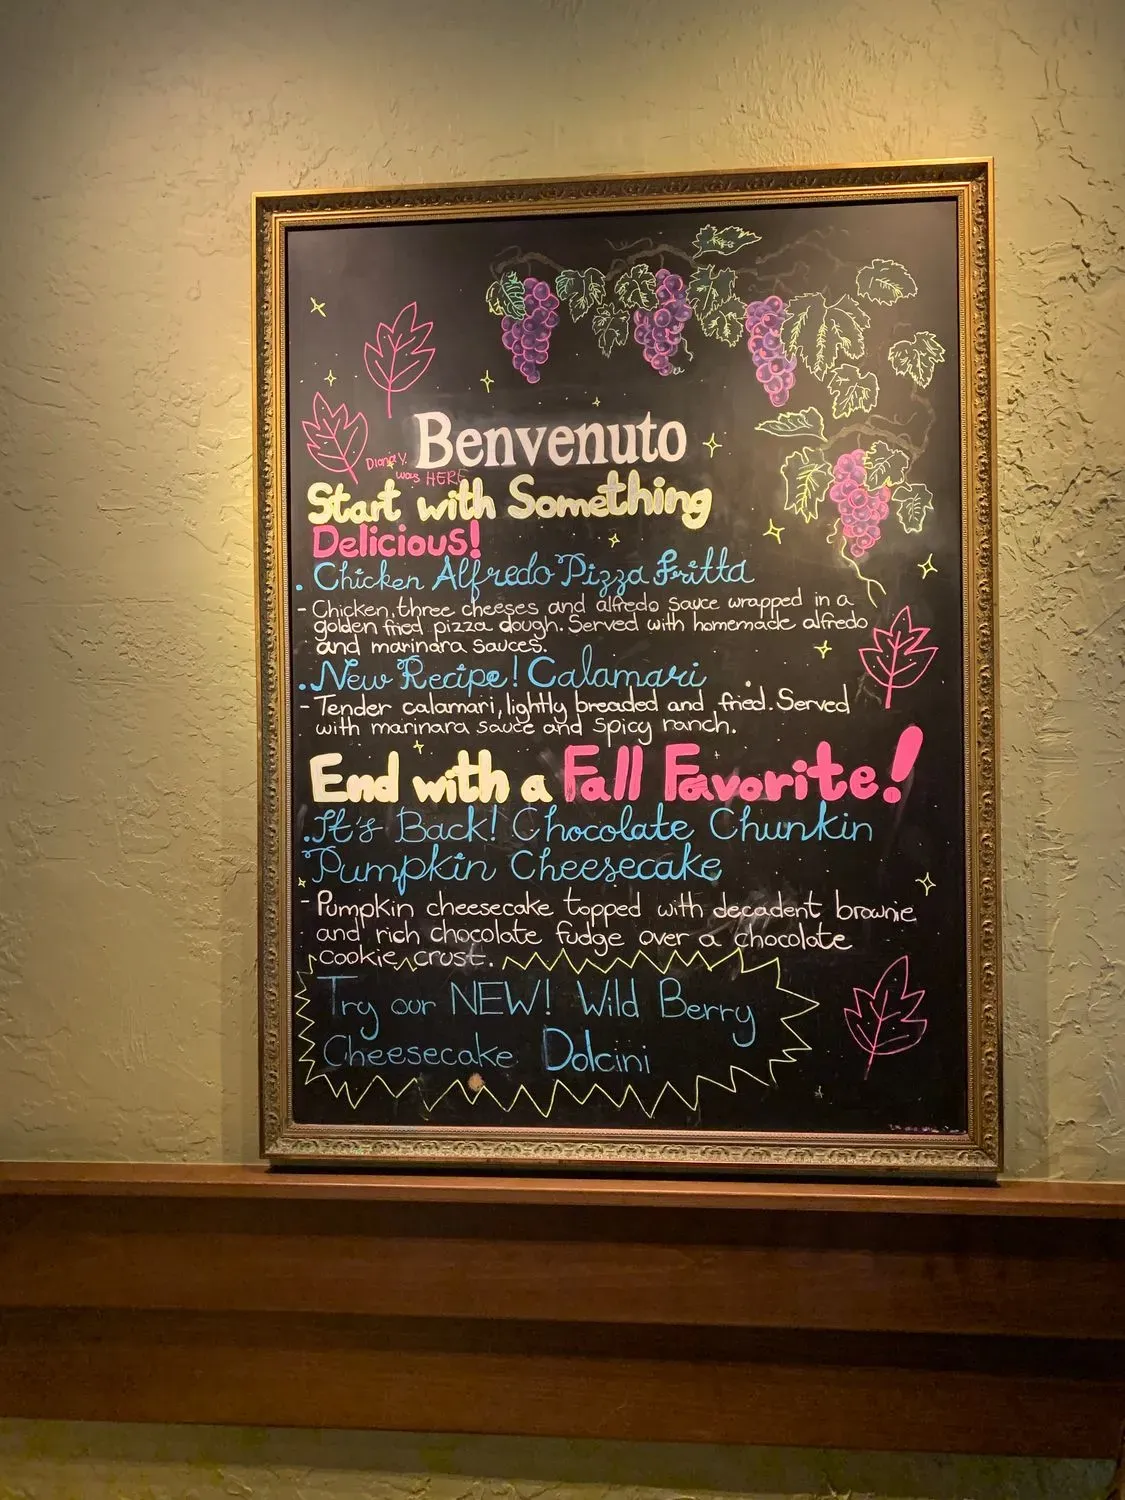 Benvenuto
Diana Y.
was HERE
Start with Something
Delicious!
. Chicken Alfredo Pizza Fritta
- Chicken, three cheeses and alfredo sauce wrapped in a
golden fried pizza dough. Served with homemade alfredo
and marinara sauces.
. New Recipe! Calamari
- Tender calamari, lightly breaded and fried. Served
with marinara sauce and spicy ranch.
End with a Fall Favorite!
. It's Back! Chocolate Chunkin
Pumpkin Cheesecake
- Pumpkin cheesecake topped with decadent brownie
and rich chocolate fudge over a chocolate
cookie crust.
Try our NEW! Wild Berry
Cheesecake Dolcini